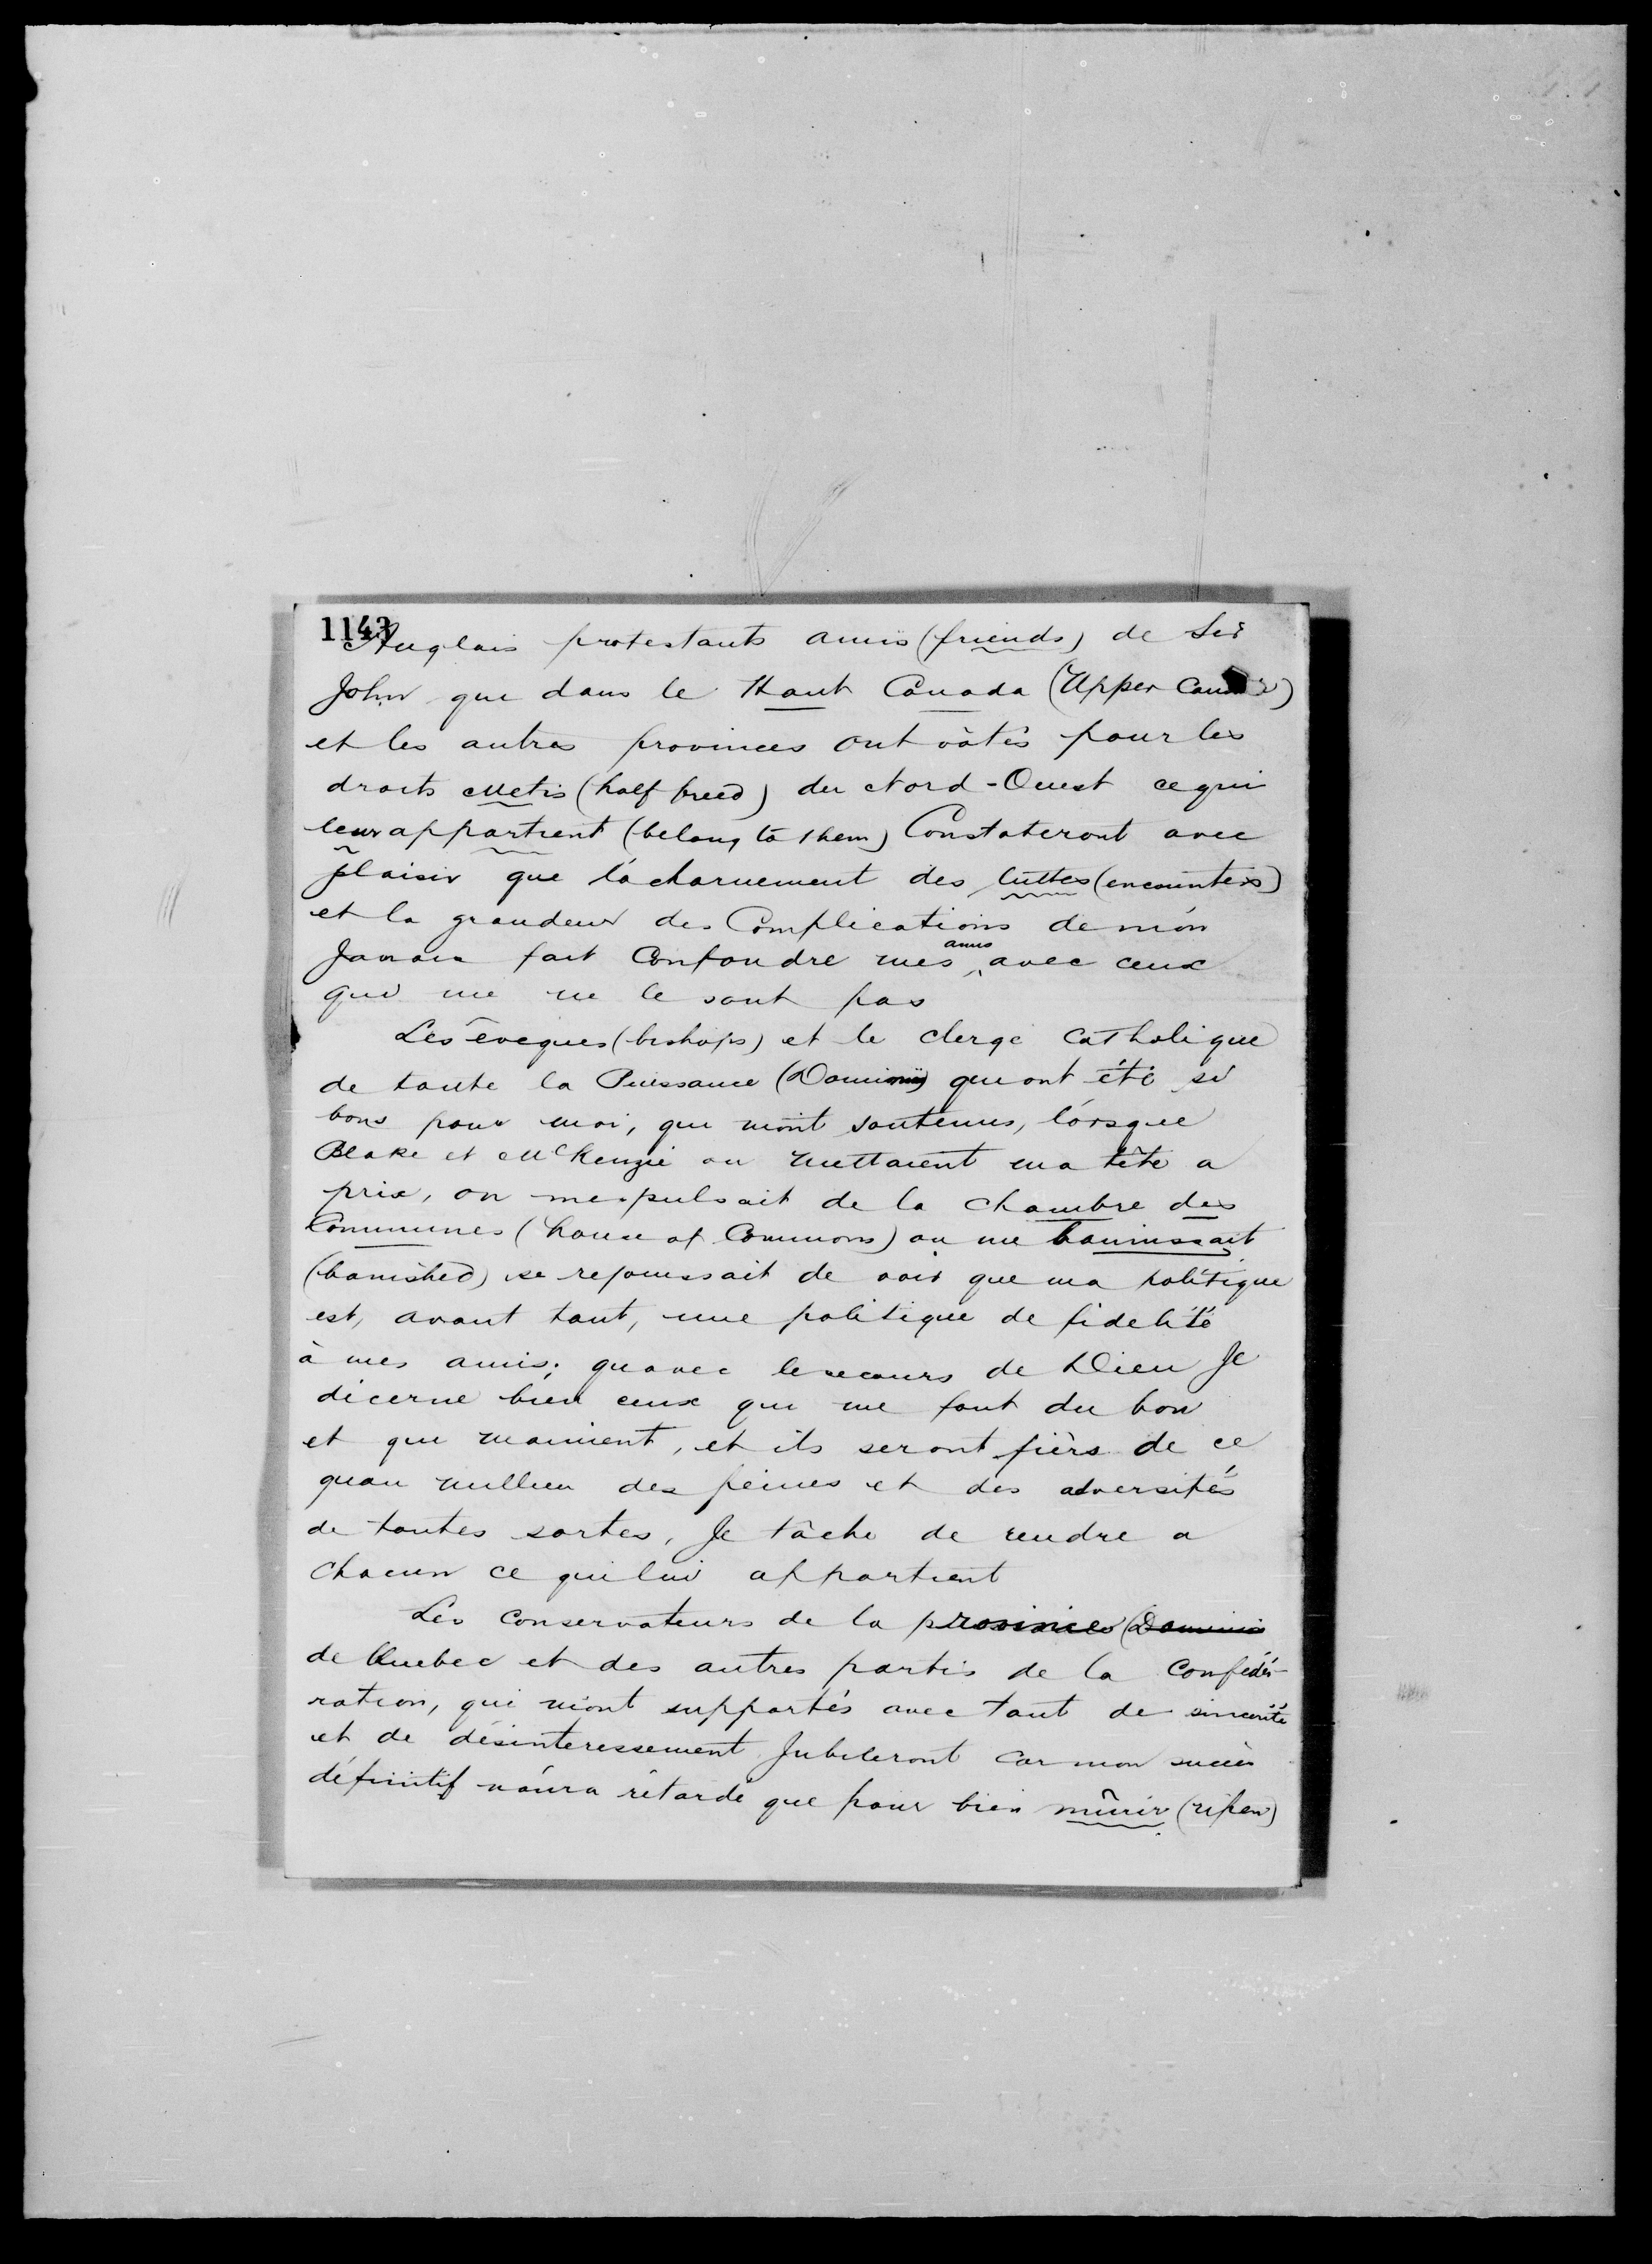 1143
Anglais protestants amis (friends) de Sir
John que dans le Haut Canada (Upper Canada)
et les autres provinces ont vôtés pour les
droits Metis (half breed) du Nord-Ouest ce qui
leur appartient (belong to them) Constateront avec
plaisir que l'acharnement des luttes (encounters)
et la grandeur des Complications de m'on
Jamais fait Confondre mes amis avec ceux
qui me ne le sont pas
Les êveques (bishops) et le clergé Catholique
de toute la Puissance (Dominion) qui ont été si
bons pour moi, qui m'ont soutenus, lorsque
Blake et McKenzie on mettaient ma tête a
prix, on mexpulsait de la chambre des
Communes (house of Commons) on me bannissait
(banished) se rejouissait de voir que ma politique
est, avant tout, une politique de fidelité
à mes amis; qu avec le secours de Dieu Je
dicerne bien ceux qui me font du bon
et qui maiment, et ils seront fièrs de ce
quau millieu des peines et des adversités
de toutes sortes, Je tâche de rendre a
chacun ce qui lui appartient
Les Conservateurs de la province (Dominio
de Quebec et des autres partis de la Confédé-
ration, qui m'ont supportés avec tant de sincerité
et de désinteressement Jubileront car mon succès
définitif n'aura rétardé que pour bien mûrir (ripen)